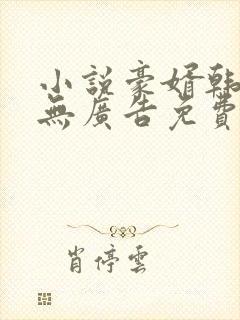 小説豪婿韩
無廣告免費
肖停雲